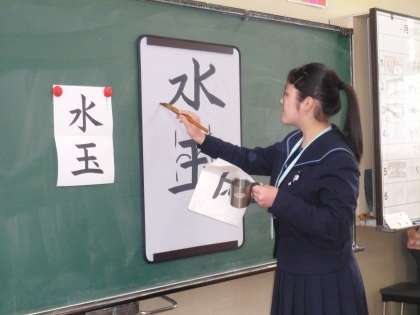 水
玉
水
玉
月